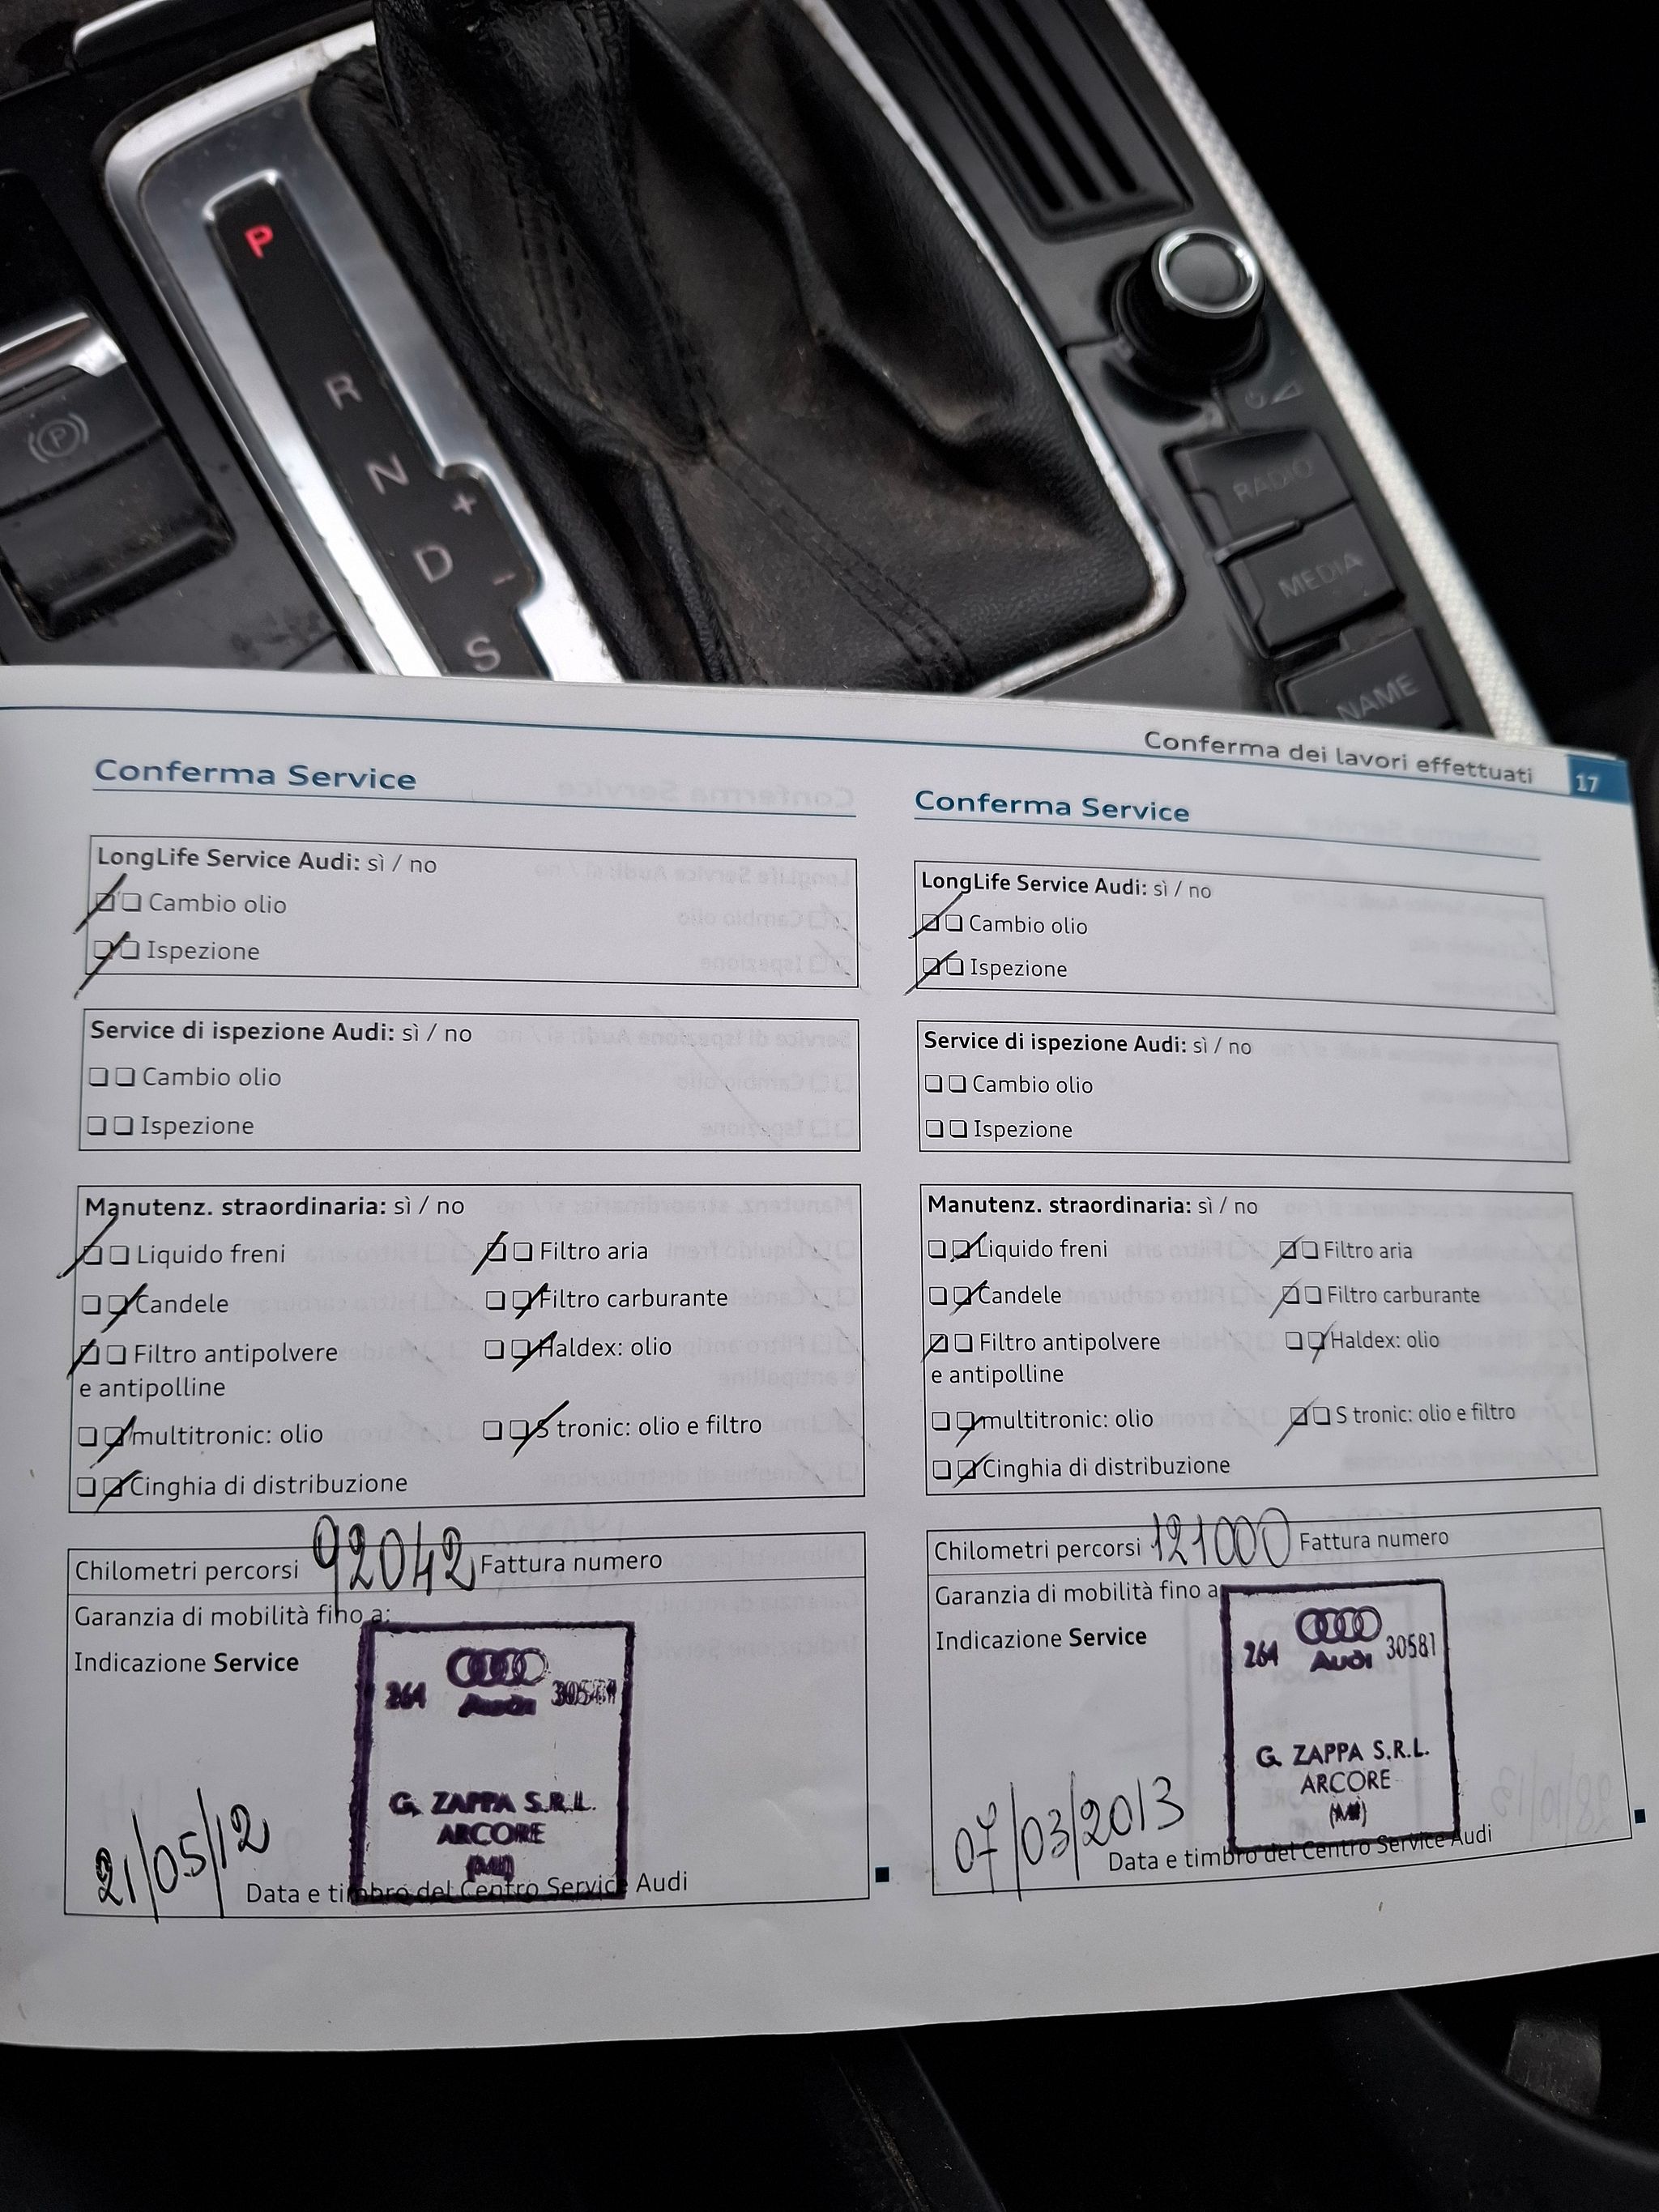 P
R
N
+
D
-
S
RADIO
MEDIA
NAME
Conferma dei lavori effettuati 17
Conferma Service
LongLife Service Audi: sì / no
Cambio olio
Ispezione
Service di ispezione Audi: sì / no
Cambio olio
Ispezione
Manutenz. straordinaria: sì / no
Liquido freni Filtro aria
Candele Filtro carburante
Filtro antipolvere Haldex: olio
e antipolline
multitronic: olio S tronic: olio e filtro
Cinghia di distribuzione
Chilometri percorsi 92042 Fattura numero
Garanzia di mobilità fino a:
Indicazione Service
264 Audi
G. ZAPPA S.R.L.
ARCORE
(MI)
21/05/12
Data e timbro del Centro Service Audi
Conferma Service
LongLife Service Audi: sì / no
Cambio olio
Ispezione
Service di ispezione Audi: sì / no
Cambio olio
Ispezione
Manutenz. straordinaria: sì / no
Liquido freni Filtro aria
Candele Filtro carburante
Filtro antipolvere Haldex: olio
e antipolline
multitronic: olio S tronic: olio e filtro
Cinghia di distribuzione
Chilometri percorsi 121000 Fattura numero
Garanzia di mobilità fino a
Indicazione Service
264 Audi 30581
G. ZAPPA S.R.L.
ARCORE
(MI)
07/03/2013
Data e timbro del Centro Service Audi